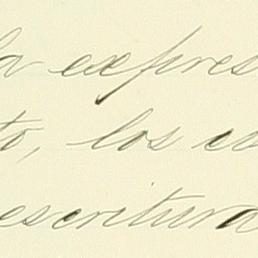 la expres
to, los es
escritura